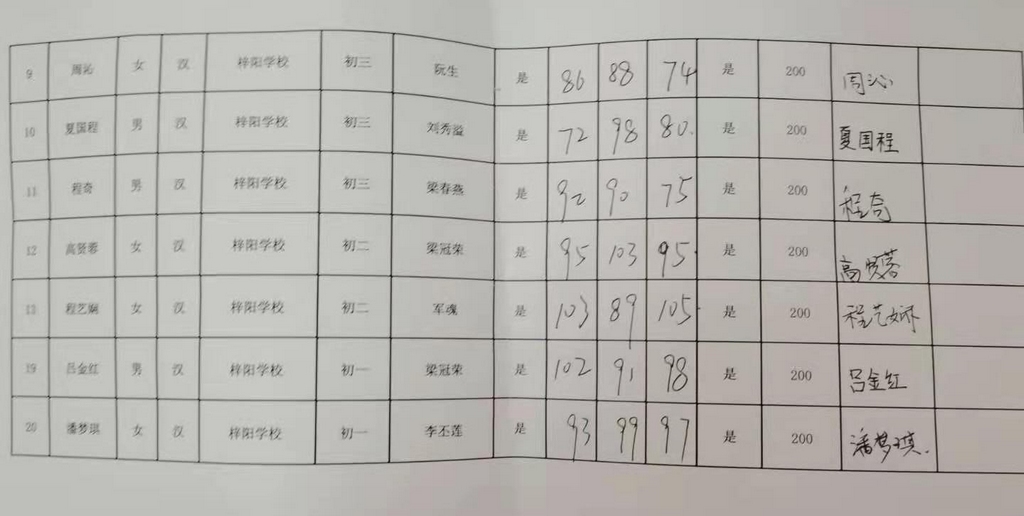 9 周沁 女 汉 梓阳学校 初三 阮生 是 86 88 74 是 200 周沁
10 夏国程 男 汉 梓阳学校 初三 刘秀溢 是 72 98 80. 是 200 夏国程
11 程奇 男 汉 梓阳学校 初三 梁春燕 是 92 90 75 是 200 程奇
12 高贤蓉 女 汉 梓阳学校 初二 梁冠荣 是 95 103 95 是 200 高贤蓉
13 程艺娴 女 汉 梓阳学校 初二 军魂 是 103 89 105 是 200 程艺娴
19 吕金红 男 汉 梓阳学校 初一 梁冠荣 是 102 91 98 是 200 吕金红
20 潘梦琪 女 汉 梓阳学校 初一 李丕莲 是 93 99 97 是 200 潘梦琪.